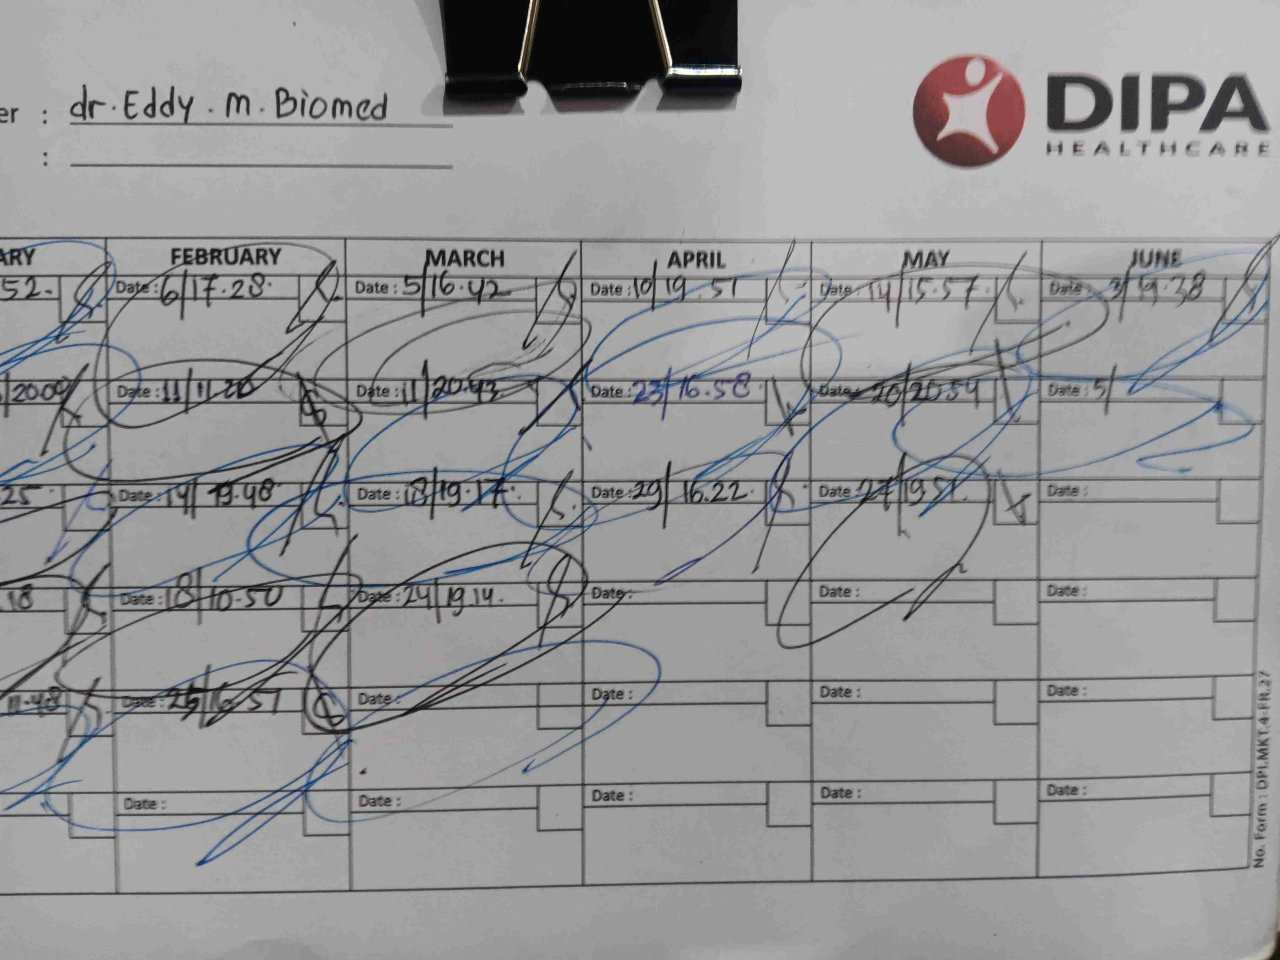 er : dr. Eddy . m. Biomed
:
DIPA
HEALTHCARE
ARY FEBRUARY MARCH APRIL MAY JUNE
52. Date : 6/17.28. Date : 5/16.42 Date : 10/19.51 Date : 14/15.57. Date : 3/19.38
/20.09 Date : 11/11.20 Date : 11/20.43 Date : 23/16.58 Date : 20/20.54 Date : 5/
25 Date : 14/19.48 Date : 18/19.17. Date : 29/16.22. Date : 27/19.51. Date :
.18 Date : 18/10.50 Date : 24/19.14. Date : Date : Date :
11.48 Date : 25/16.51 Date : Date : Date : Date :
Date : Date : Date : Date : Date :
No. Form : DPI.MKT.4-FR.27